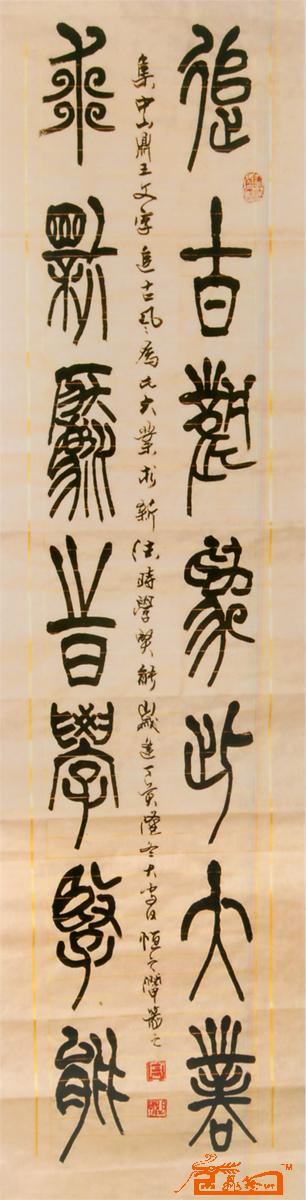 追古風為此大業
集中山鼎王文字追古風為此大業求新法時學賢能歲逢丁亥隆冬大雪日恒之
求新法時學賢能
TM